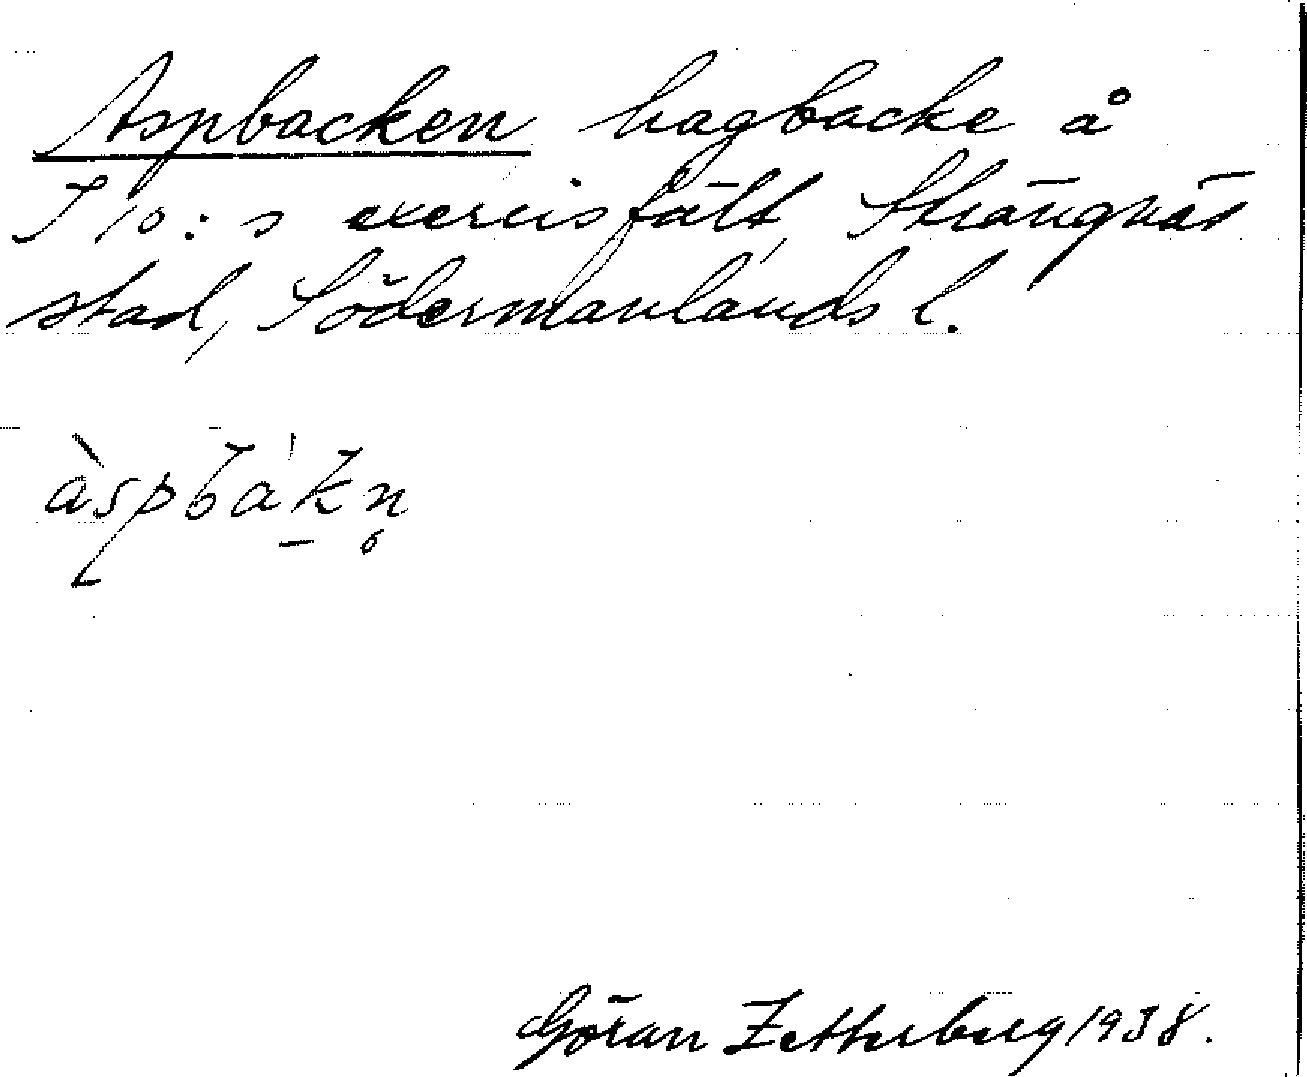 Aspbacken hagbacke å
I 10:s exercisfält, Strängnäs
stad, Södermanlands l.
àspbákn̥
Göran Zetterberg 1938.